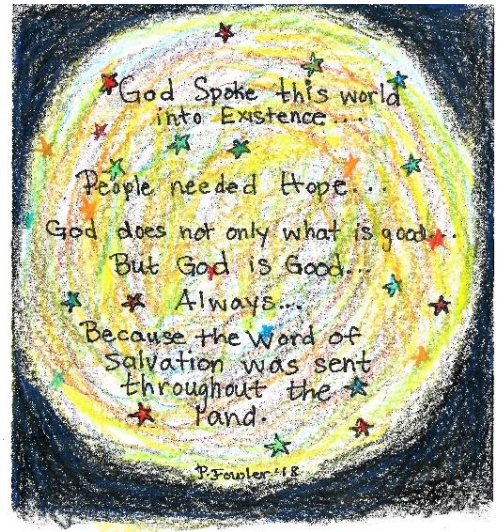 God Spoke this world
into Existence...
People needed Hope...
God does not only what is good...
But God is Good...
Always...
Because the Word of
Salvation was sent
throughout the
land.
P. Fowler '18